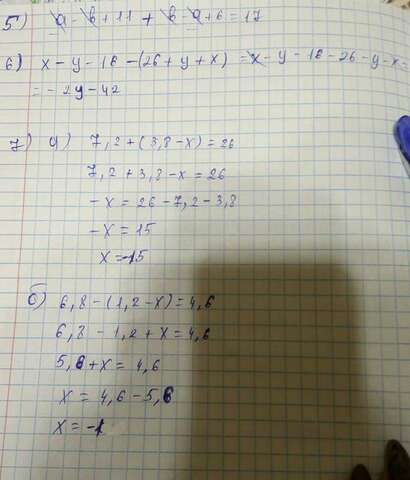 5) a - b + 11 + b - a + 6 = 17
6) x - y - 16 - (26 + y + x) = x - y - 16 - 26 - y - x =
= - 2y - 42
7) a) 7,2 + (3,8 - x) = 26
7,2 + 3,8 - x = 26
-x = 26 - 7,2 - 3,8
-x = 15
x = -15
б) 6,8 - (1,2 - x) = 4,6
6,8 - 1,2 + x = 4,6
5,6 + x = 4,6
x = 4,6 - 5,6
x = -1